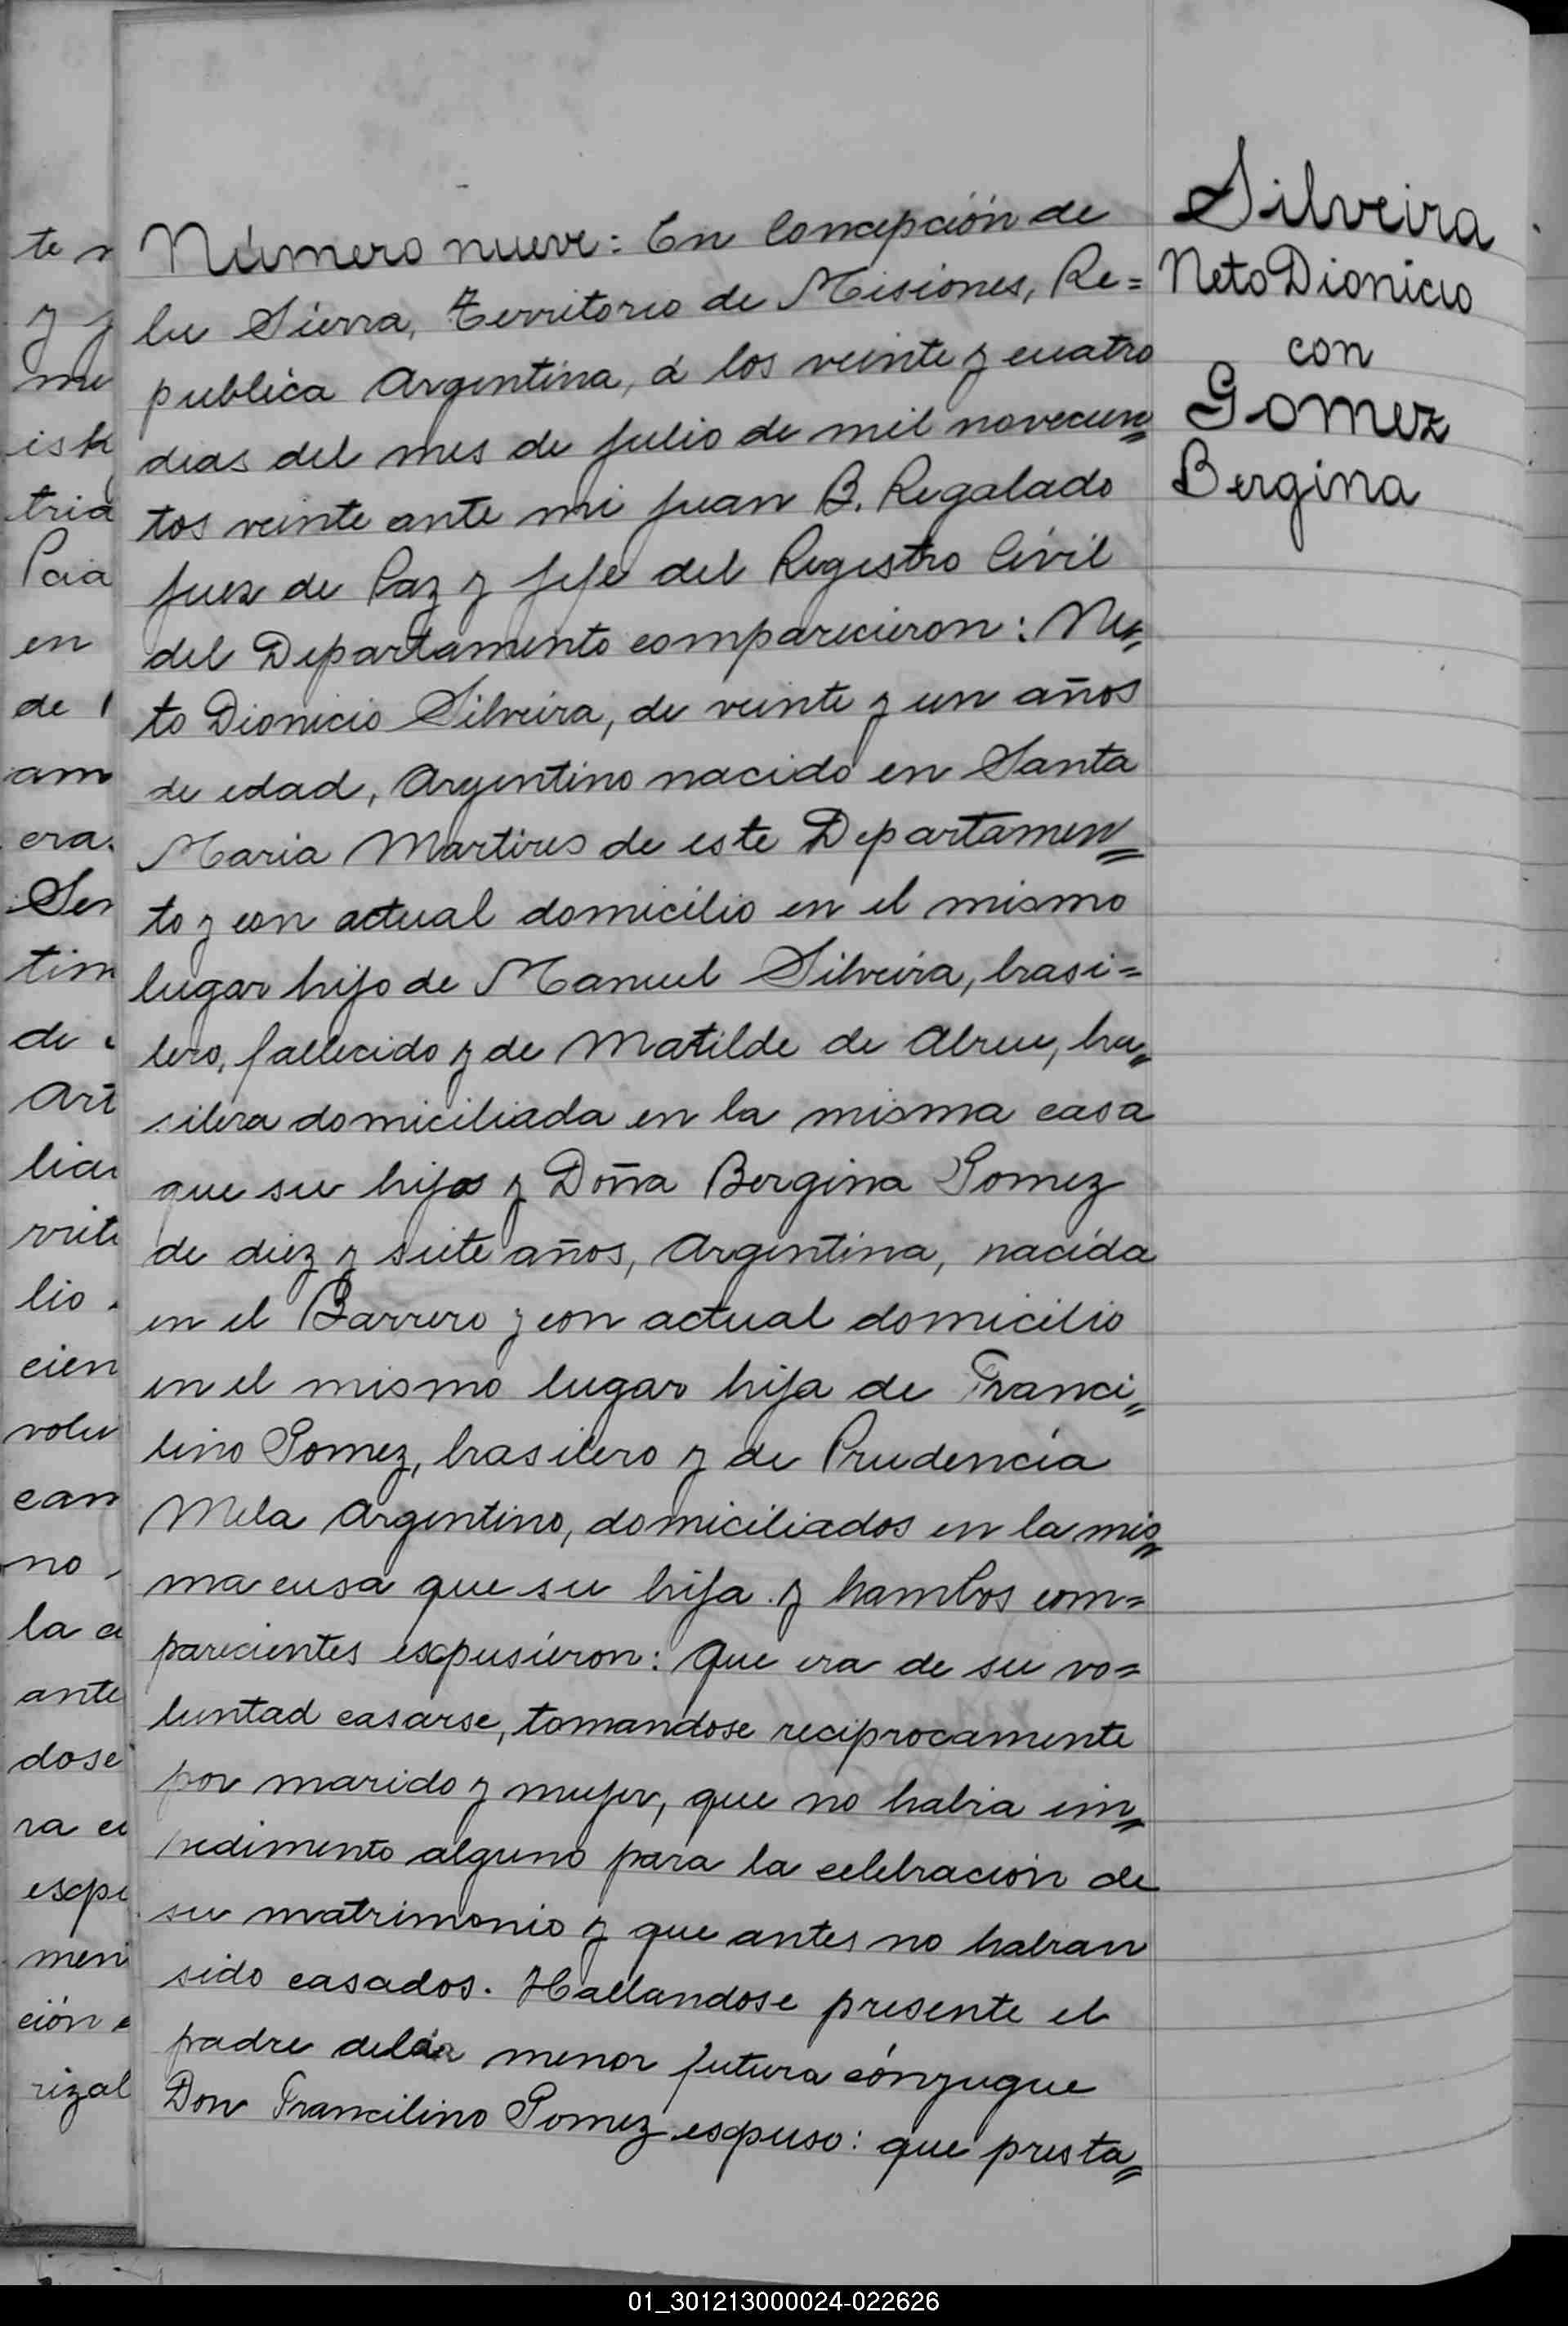 Número nueve: En Concepción de
la Sierra, Territorio de Misiones, Re=
publica Argentina, á los veinte y cuatro
dias del mes de Julio de mil novecien=
tos veinte ante mi Juan B. Regalado
Juez de Paz y Jefe del Registro Civil
del Departamento comparecieron: Ne=
to Dionicio Silveira, de veinte y un años
de edad, Argentino nacido en Santa
Maria Martires de este Departamen=
to y con actual domicilio en el mismo
lugar hijo de Manuel Silveira, brasi=
lero, fallecido y de Matilde de Abreu, bra=
silera domiciliada en la misma casa
que su hijo y Doña Bergina Gomez
de diez y siete años, Argentina, nacida
en el Barrero y con actual domicilio
en el mismo lugar hija de Franci=
lino Gomez, brasilero y de Prudencia
Mela Argentino, domiciliados en la mis=
ma casa que su hija y hambos com=
parecientes expusieron: Que era de su vo=
luntad casarse, tomandose reciprocamente
por marido y mujer, que no habia im=
pedimento alguno para la celebracion de
su matrimonio y que antes no habian
sido casados. Hallandose presente el
padre dela menor futura cónyugue
Don Francilino Gomez expuso: que presta=
Silveira
Neto Dionicio
con
Gomez
Bergina
01_301213000024-022626